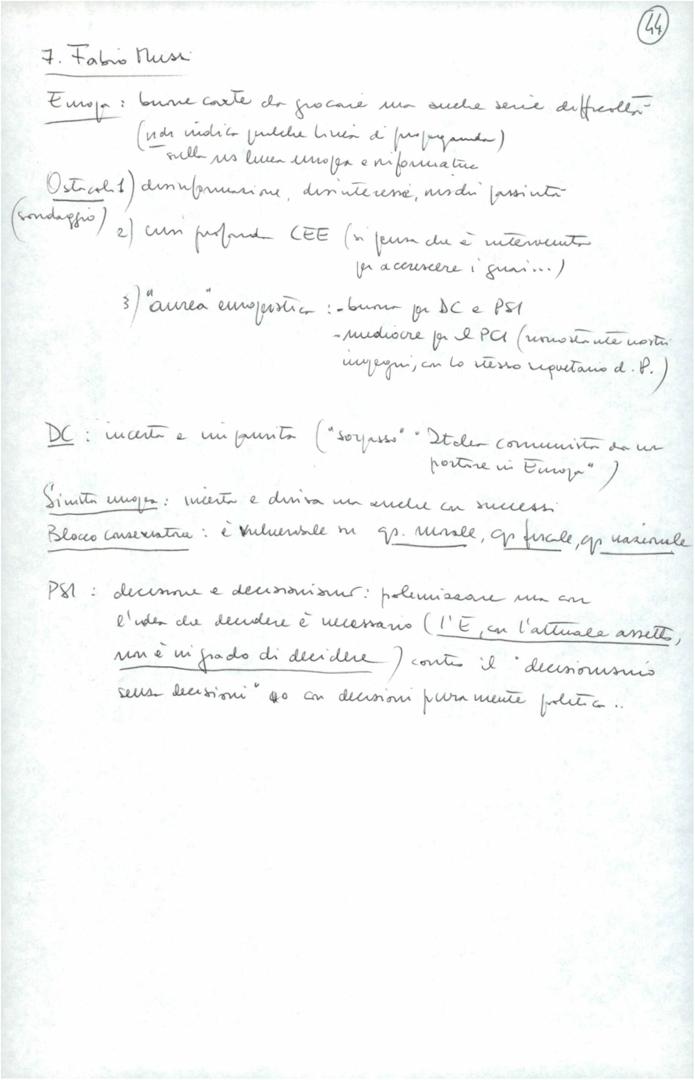 44
7. Fabio Mussi
Europa : buone carte da giocare ma anche serie difficoltà
(ndr indica qualche linea di propaganda)
sulla ns linea europea e riformatrice
Ostacoli 1) disinformazione, disinteresse,
(sondaggio) 2) crisi profonda CEE (si pensa che è intervenuta
per accrescere i guai...)
3) "aurea" europeistica : - buona per DC e PSI
- mediocre per il PCI (nonostante nostri
impegni, con lo stesso segretario d. P.)
DC : incerta e impaurita ("sorpasso" "Italia comunista da un
portare in Europa")
Sinistra europea : incerta e divisa ma anche con successi
Blocco conservatore : è vulnerabile su qs. morale, qs fiscale, qs nazionale
PSI : decisione e decisionismo : polemizzare ma con
l'idea che decidere è necessario (l'E, con l'attuale assetto,
non è in grado di decidere) contro il "decisionismo
senza decisioni" o con decisioni puramente politica ..